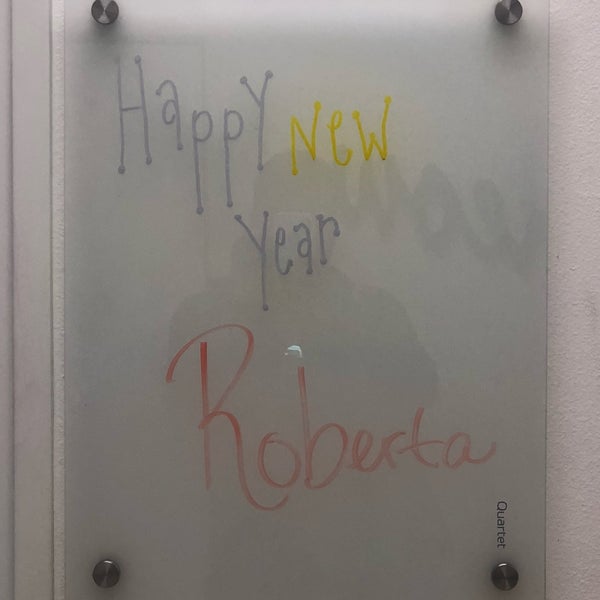 Happy New
Year
Roberta
Quartet